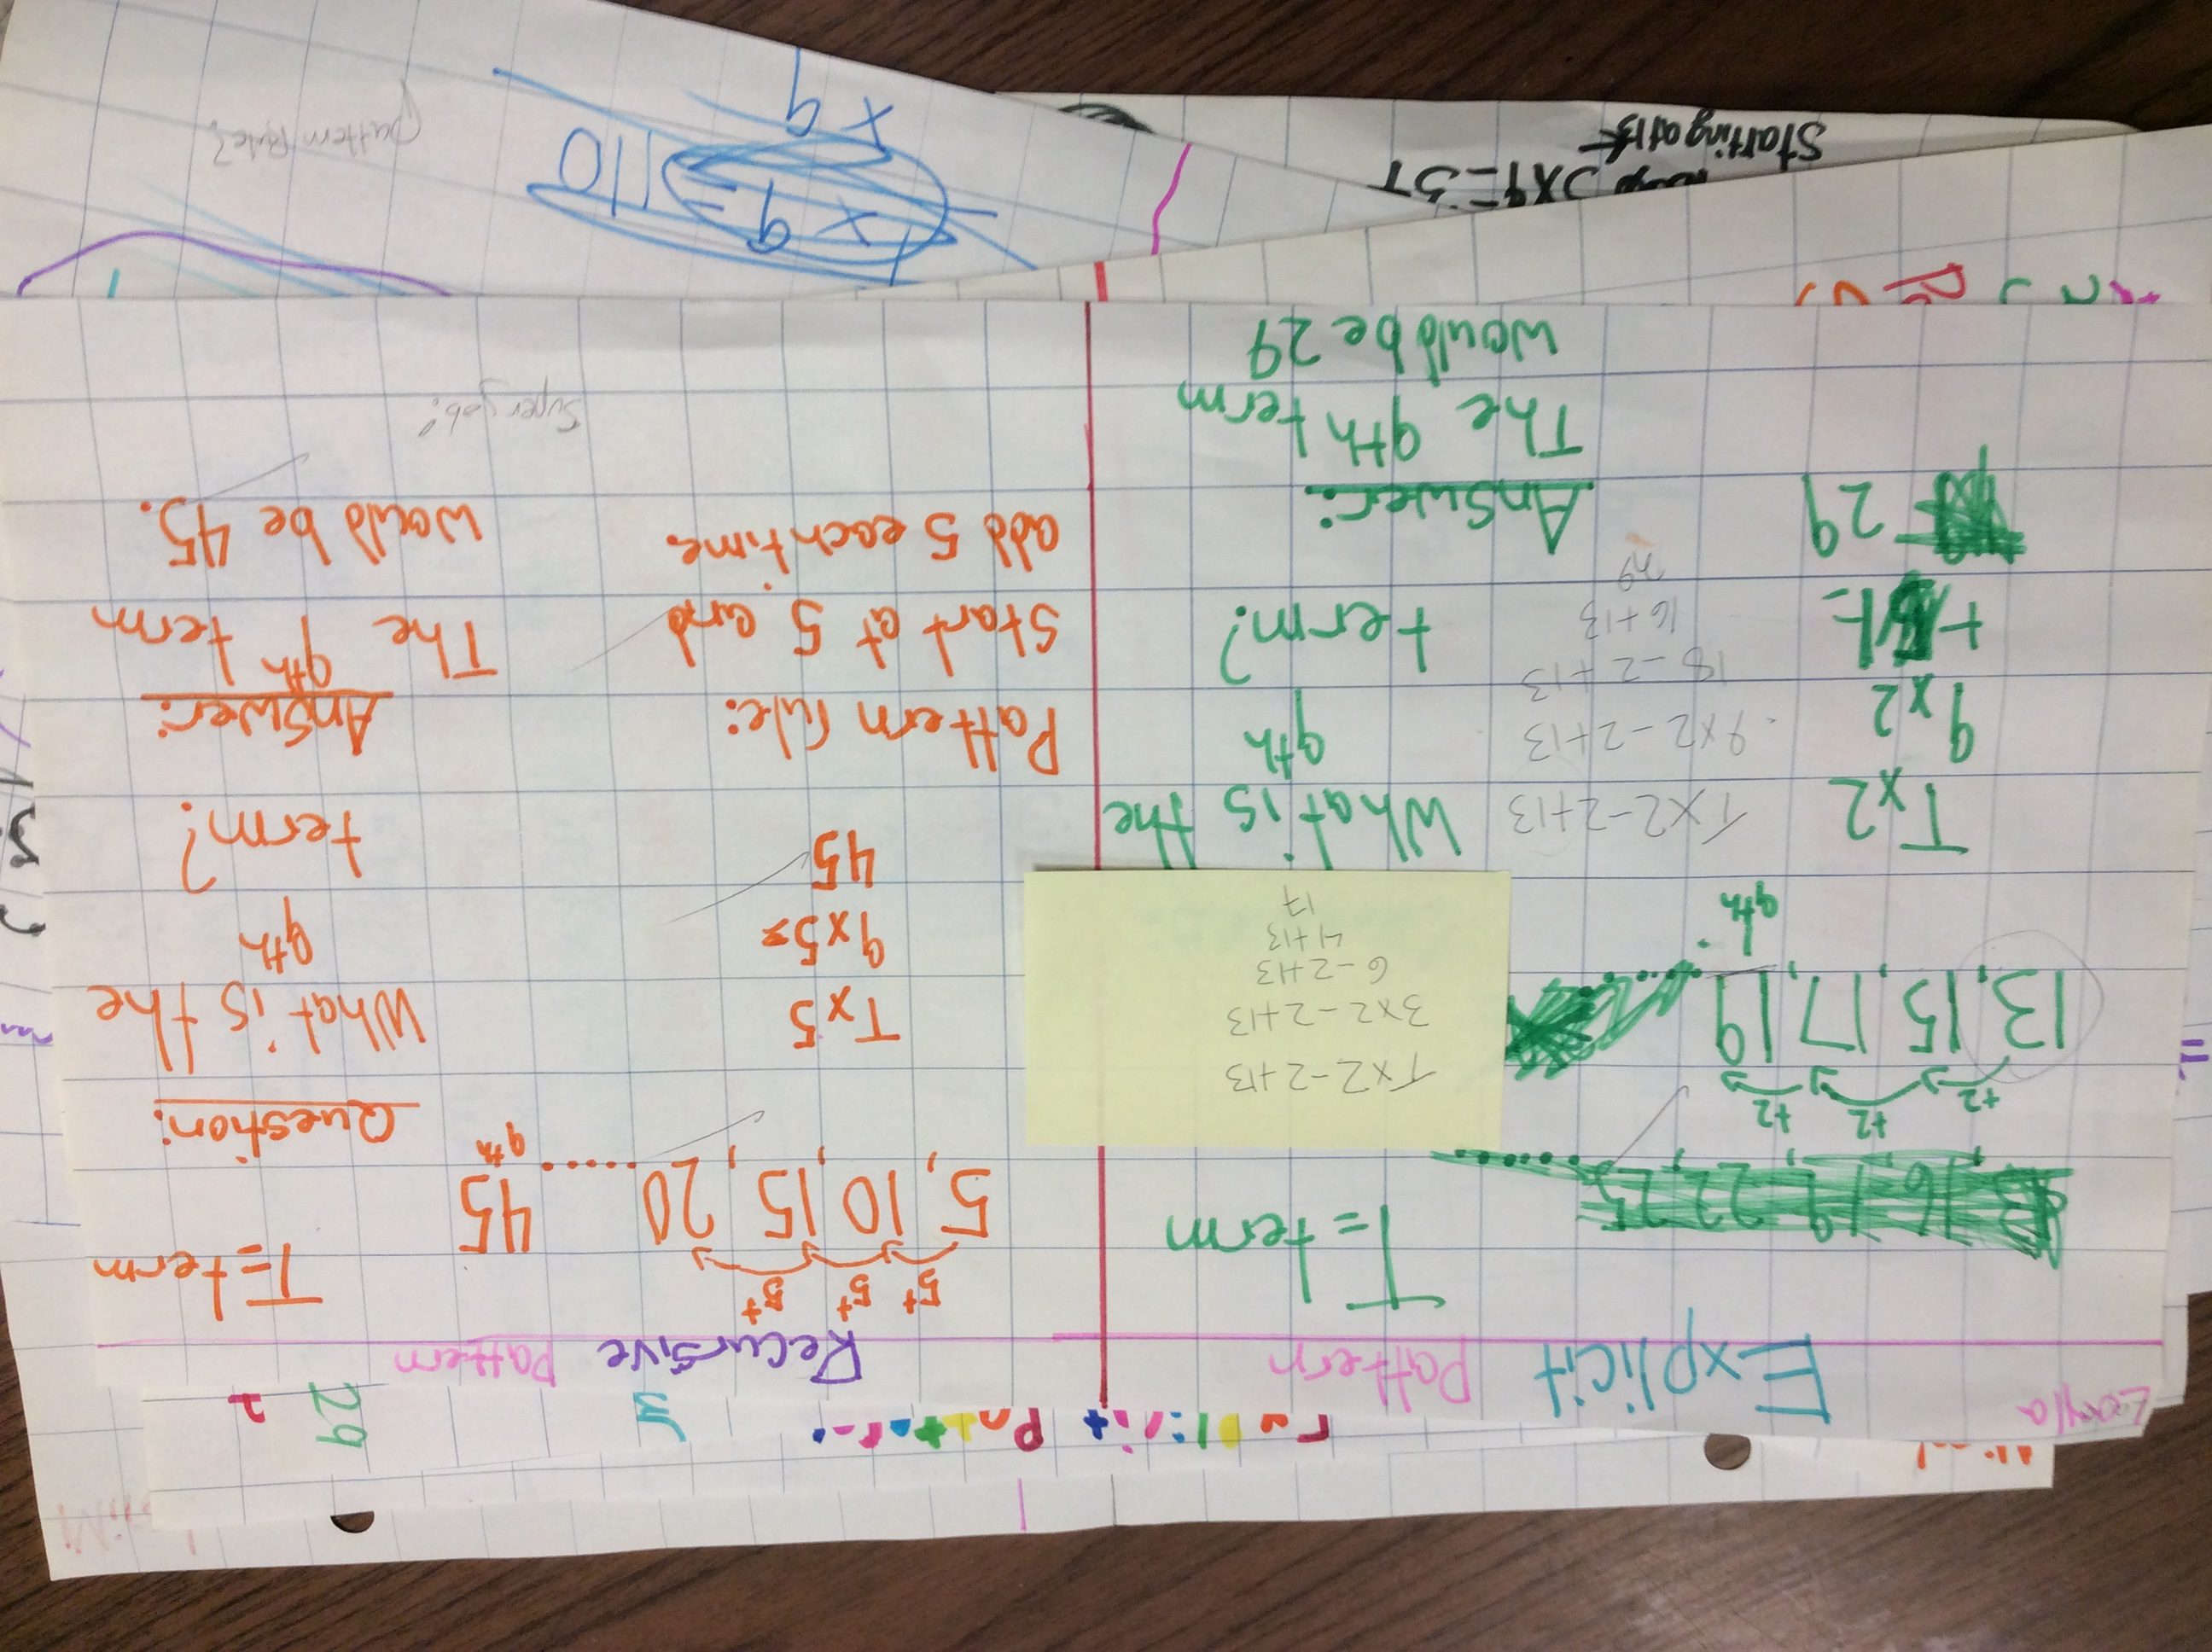 Explicit Pattern
T=term
13, 16, 19, 22, 25......
+2 +2 +2
13, 15, 17, 19......
9th
Tx2
9x2
29
Tx2-2+13
9x2-2+13
18-2+13
16+13
29
What is the
9th
term?
Answer:
The 9th term
would be 29
Tx2-2+13
3x2-2+13
6-2+13
4+13
17
Recursive Pattern
T=term
5+ 5+ 5+
5, 10, 15, 20...... 45
9th
Tx5
9x5=
45
Pattern rule:
Start at 5 and
add 5 each time.
Question:
What is the
9th
term?
Answer:
The 9th term
would be 45.
Super job!
29
Starting at 13
x9=110
x9
Pattern Rule?